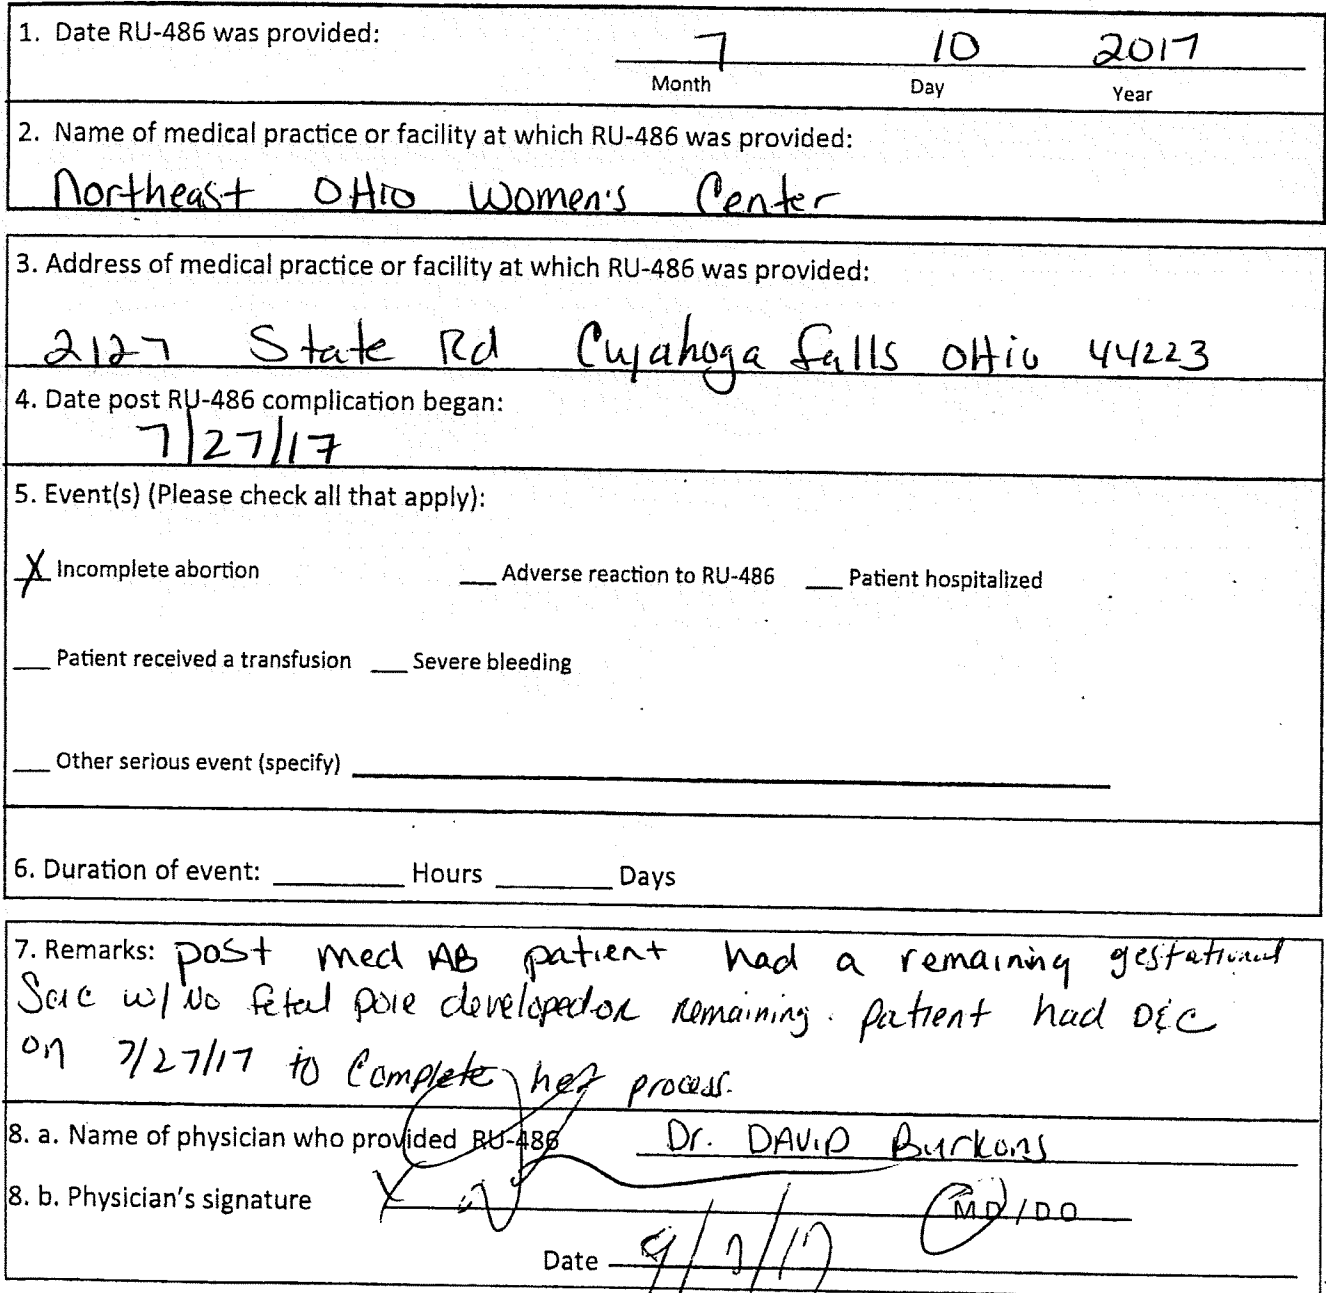 1. Date RU-486 was provided: 7 10 2017
Month Day Year
2. Name of medical practice or facility at which RU-486 was provided:
Northeast OHio Women's Center
3. Address of medical practice or facility at which RU-486 was provided:
2127 State Rd Cuyahoga Falls OHio 44223
4. Date post RU-486 complication began:
7/27/17
5. Event(s) (Please check all that apply):
X Incomplete abortion ___ Adverse reaction to RU-486 ___ Patient hospitalized
___ Patient received a transfusion ___ Severe bleeding
___ Other serious event (specify) ___
6. Duration of event: ___ Hours ___ Days
7. Remarks: post med AB patient had a remaining gestational
Sac w/ No fetal pole developed or remaining. patient had D&C
on 7/27/17 to Complete her process.
8. a. Name of physician who provided RU-486 Dr. DAVID Burkons
8. b. Physician's signature X MD/DO
Date